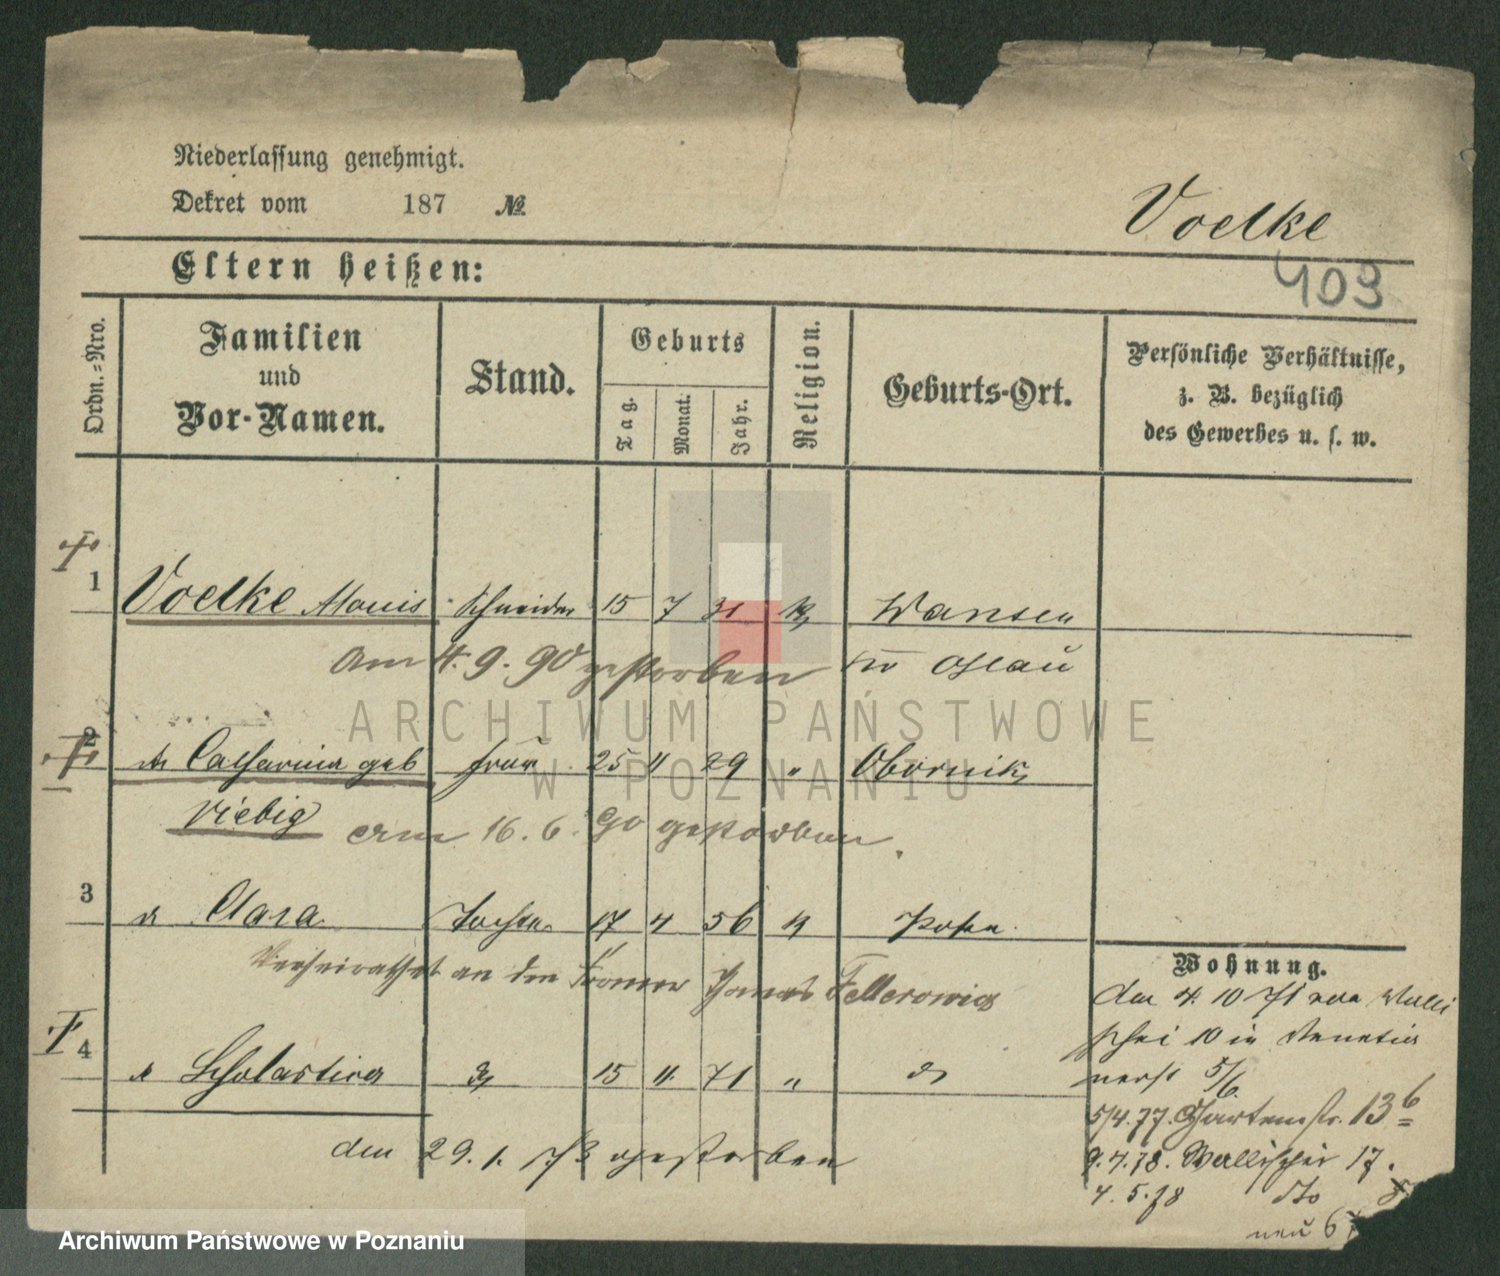 Niederlassung genehmigt.
Dekret vom 187 №
Voelke
Eltern heißen:
409
Ordn.=Nro.
Familien und Vor-Namen.
Stand.
Geburts
Tag.
Monat.
Jahr.
Religion.
Geburts-Ort.
Persönliche Verhältnisse, z. B. bezüglich des Gewerbes u. s. w.
1 Voelke Schneider 15 7 31 Wansen
am 4. 9. 90 gestorben Ohlau
2 Catharina geb Frau 25 11 29 " Obornik
Viebig am 16. 6. 90 gestorben.
3 Clara Tochter 17 4 56 Posen
Verheirathet an den Thomas Fellerowicz
4 Scholastica 15 71 "
den 29. 1. 73 gestorben
Wohnung.
Am 4. 10 71 von Walli
schei 10 in Venetia
nerst 5/6.
5/4. 77. Gartenstr. 13 b
9. 4. 78. Wallischei 17.
4. 5. 78 dto
neu 6
ARCHIWUM PAŃSTWOWE
W POZNANIU
Archiwum Państwowe w Poznaniu